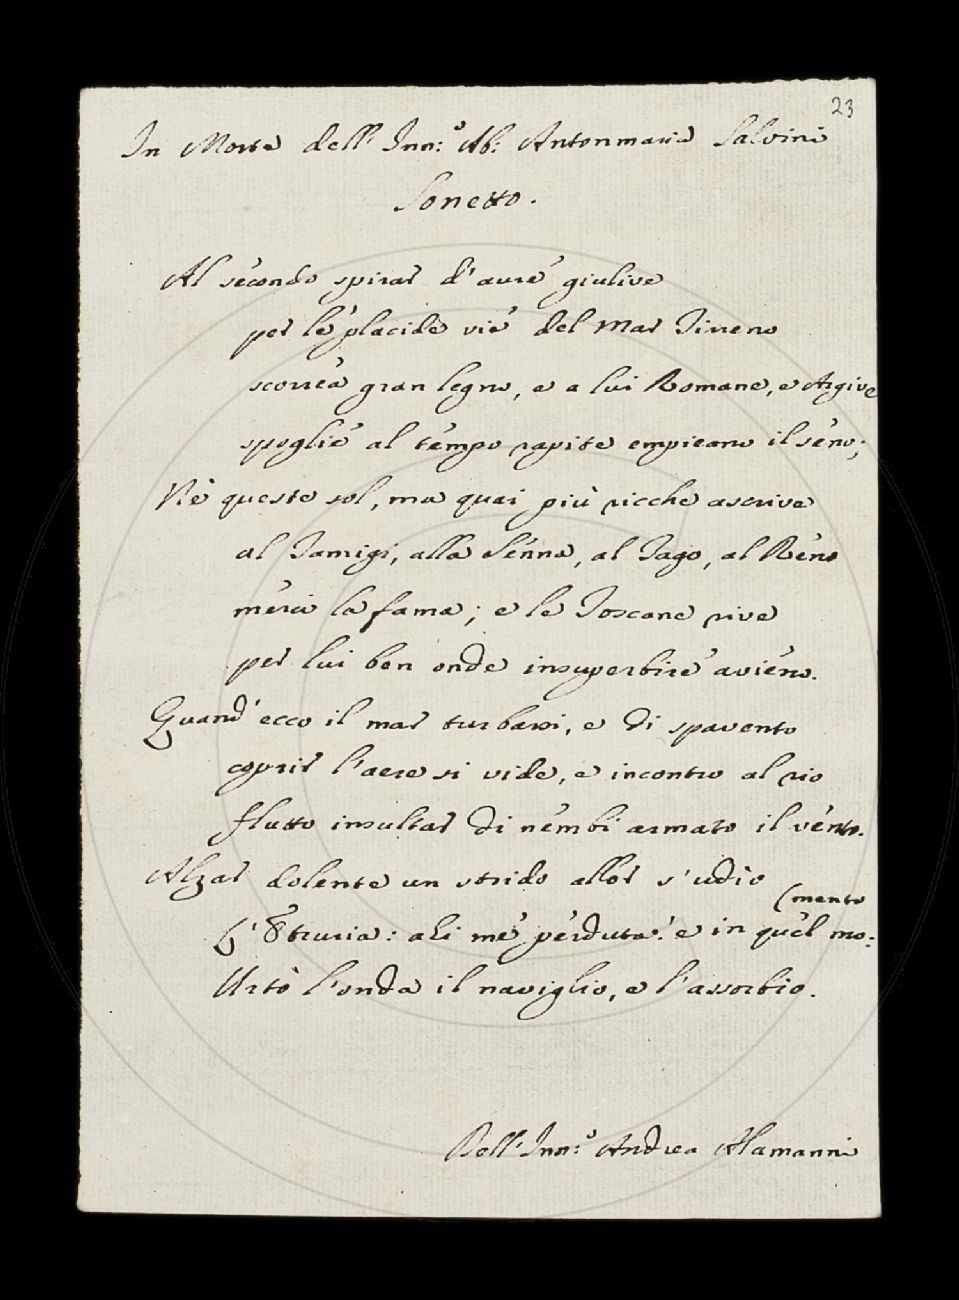 23
In Morte dell' Inn:º Ab: Antonmaria Salvini
Sonetto.
Al secondo spirar d'aure giulive
per le placide vie del Mar Tirreno
scorrea gran legno, e a lui Romane, e Argive
spoglie al tempo rapite empieano il seno;
Nè queste sol, ma quai più ricche ascrive
al Tamigi, alla Senna, al Tago, al Reno
merci la fama; e le Toscane rive
per lui ben onde insuperbire avieno.
Quand' ecco il mar turbarsi, e di spavento
coprir l'aere si vide, e incontro al rio
flutto insultar di nembi armato il vento.
Alzar dolente un strido allor s'udìo
(mento
L'Etruria: ahi me perduta! e in quel mo:
Urtò l'onda il naviglio, e l'assorbio.
Dell' Inn:º Andrea Alamanni